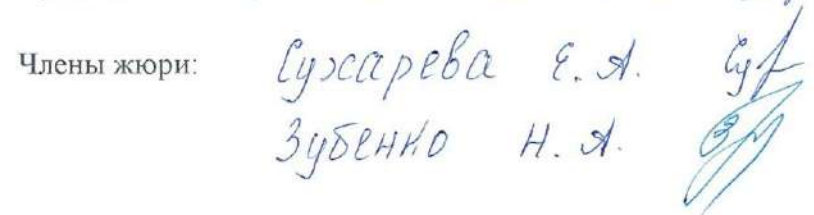 Члены жюри: Сухарева Е. А.
Зубенко Н. А.